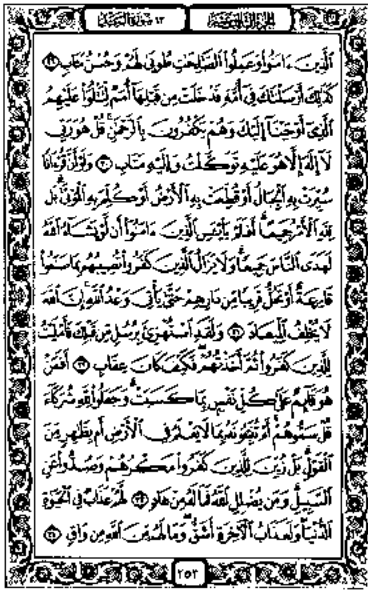 الجزء الثالث عشر
١٣ سورة الرعد
ٱلَّذِينَ ءَامَنُوا۟ وَعَمِلُوا۟ ٱلصَّٰلِحَٰتِ طُوبَىٰ لَهُمْ وَحُسْنُ مَـَٔابٍ ٢٩
كَذَٰلِكَ أَرْسَلْنَٰكَ فِىٓ أُمَّةٍ قَدْ خَلَتْ مِن قَبْلِهَآ أُمَمٌ لِّتَتْلُوَا۟ عَلَيْهِمُ
ٱلَّذِىٓ أَوْحَيْنَآ إِلَيْكَ وَهُمْ يَكْفُرُونَ بِٱلرَّحْمَٰنِ ۚ قُلْ هُوَ رَبِّى
لَآ إِلَٰهَ إِلَّا هُوَ عَلَيْهِ تَوَكَّلْتُ وَإِلَيْهِ مَتَابِ ٣٠ وَلَوْ أَنَّ قُرْءَانًا
سُيِّرَتْ بِهِ ٱلْجِبَالُ أَوْ قُطِّعَتْ بِهِ ٱلْأَرْضُ أَوْ كُلِّمَ بِهِ ٱلْمَوْتَىٰ ۗ بَل
لِّلَّهِ ٱلْأَمْرُ جَمِيعًا ۗ أَفَلَمْ يَا۟يْـَٔسِ ٱلَّذِينَ ءَامَنُوٓا۟ أَن لَّوْ يَشَآءُ ٱللَّهُ
لَهَدَى ٱلنَّاسَ جَمِيعًا ۗ وَلَا يَزَالُ ٱلَّذِينَ كَفَرُوا۟ تُصِيبُهُم بِمَا صَنَعُوا۟
قَارِعَةٌ أَوْ تَحُلُّ قَرِيبًا مِّن دَارِهِمْ حَتَّىٰ يَأْتِىَ وَعْدُ ٱللَّهِ ۚ إِنَّ ٱللَّهَ
لَا يُخْلِفُ ٱلْمِيعَادَ ٣١ وَلَقَدِ ٱسْتُهْزِئَ بِرُسُلٍ مِّن قَبْلِكَ فَأَمْلَيْتُ
لِلَّذِينَ كَفَرُوا۟ ثُمَّ أَخَذْتُهُمْ ۖ فَكَيْفَ كَانَ عِقَابِ ٣٢ أَفَمَنْ
هُوَ قَآئِمٌ عَلَىٰ كُلِّ نَفْسٍۭ بِمَا كَسَبَتْ ۗ وَجَعَلُوا۟ لِلَّهِ شُرَكَآءَ
قُلْ سَمُّوهُمْ ۚ أَمْ تُنَبِّـُٔونَهُۥ بِمَا لَا يَعْلَمُ فِى ٱلْأَرْضِ أَم بِظَٰهِرٍ مِّنَ
ٱلْقَوْلِ ۗ بَلْ زُيِّنَ لِلَّذِينَ كَفَرُوا۟ مَكْرُهُمْ وَصُدُّوا۟ عَنِ
ٱلسَّبِيلِ ۗ وَمَن يُضْلِلِ ٱللَّهُ فَمَا لَهُۥ مِنْ هَادٍ ٣٣ لَّهُمْ عَذَابٌ فِى ٱلْحَيَوٰةِ
ٱلدُّنْيَا ۖ وَلَعَذَابُ ٱلْءَاخِرَةِ أَشَقُّ ۖ وَمَا لَهُم مِّنَ ٱللَّهِ مِن وَاقٍ ٣٤
٢٥٣